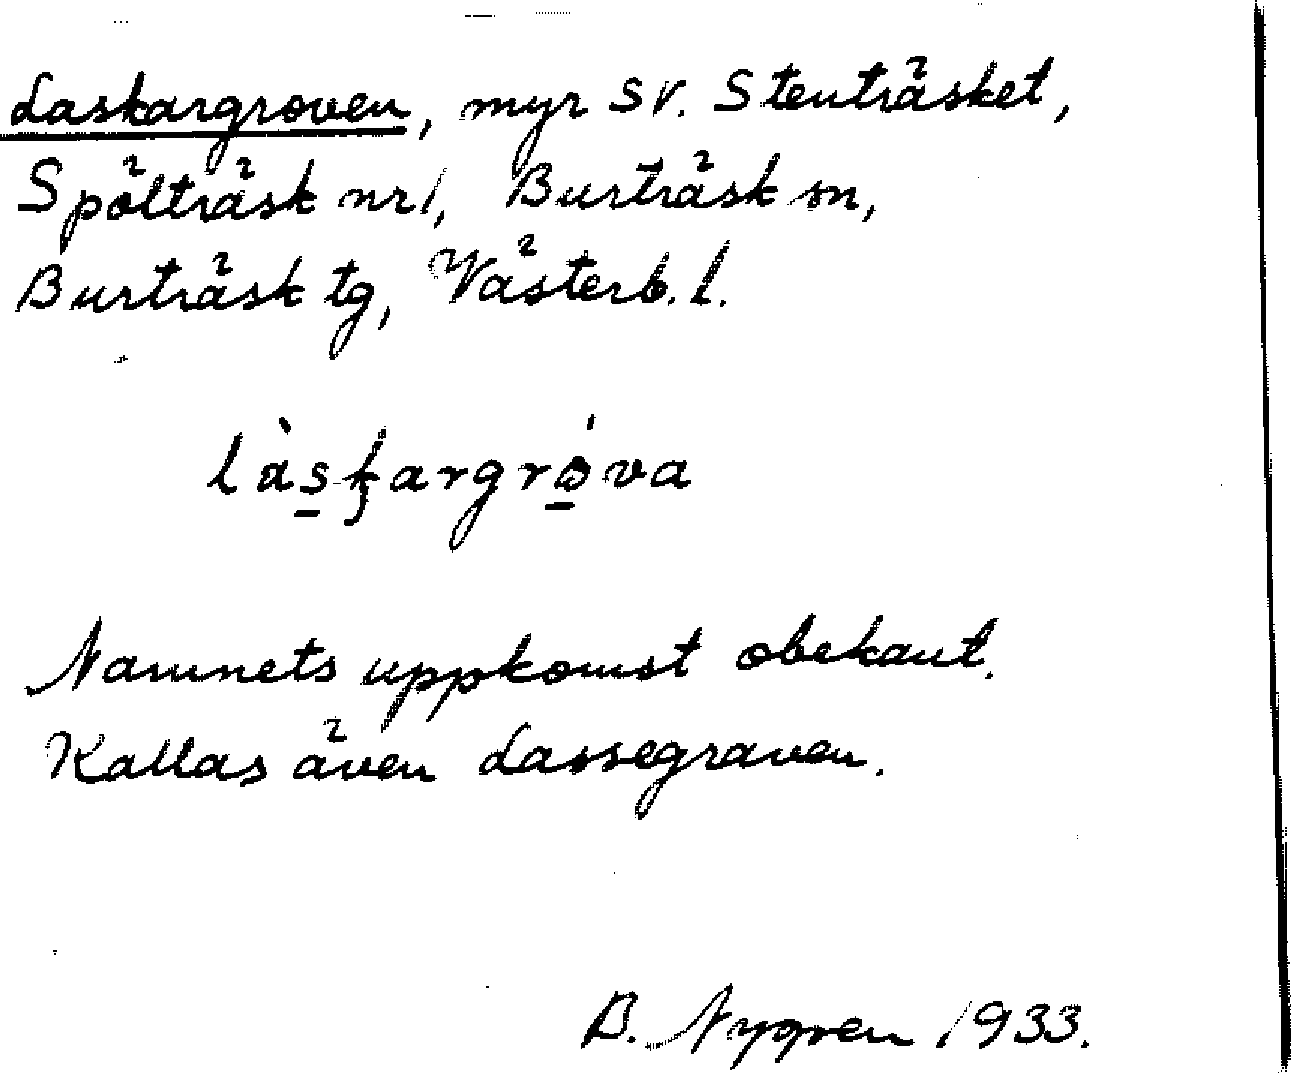 Laskargroven, myr SV. Stenträsket,
Spölträsk nr 1, Burträsk sn,
Burträsk tg, Västerb. l.
làsk̡argróva
Namnets uppkomst obekant.
Kallas även Lassegraven.
B. Nygren 1933.